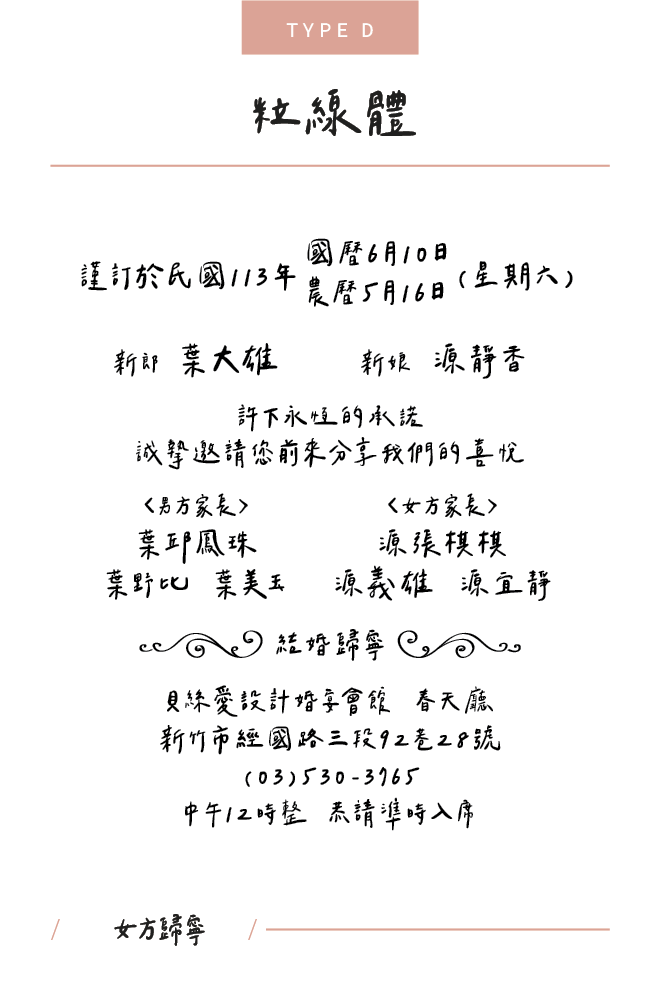 TYPE D
粒線體
謹訂於民國113年 國曆6月10日 (星期六)
農曆5月16日
新郎 葉大雄 新娘 源靜香
許下永恆的承諾
誠摯邀請您前來分享我們的喜悅
<男方家長> <女方家長>
葉邱鳳珠 源張棋棋
葉野比 葉美玉 源義雄 源宜靜
結婚歸寧
貝絲愛設計婚宴會館 春天廳
新竹市經國路三段92巷28號
(03)530-3765
中午12時整 恭請準時入席
/ 女方歸寧 /